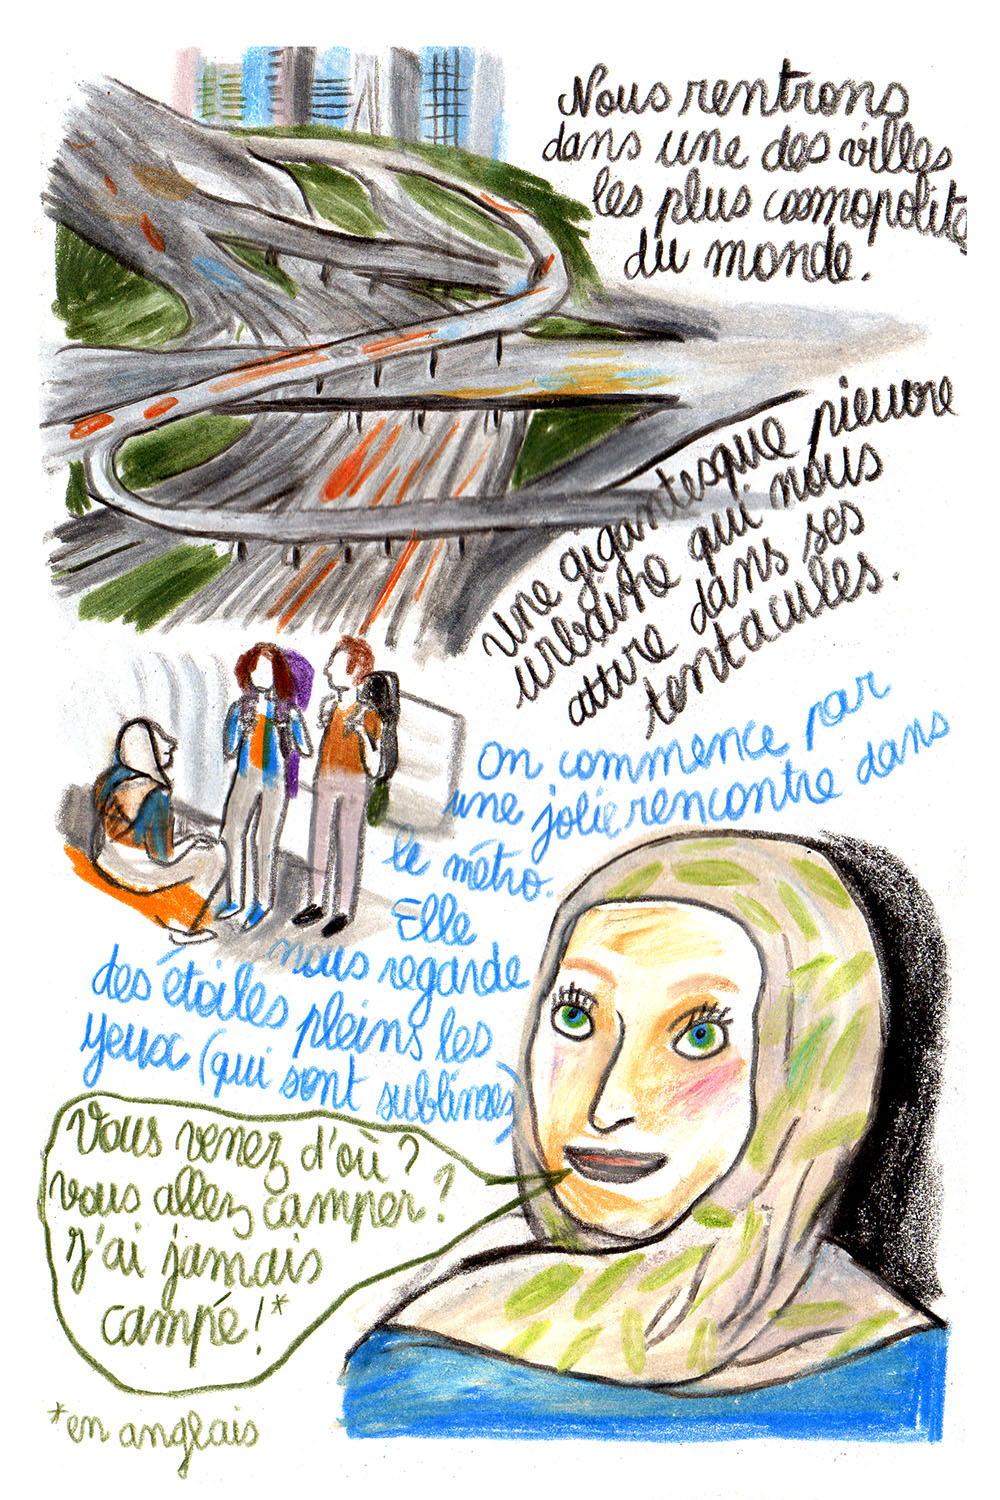 Nous rentrons
dans une des villes
les plus cosmopolite
du monde.
une gigantesque pieuvre
urbaine qui nous
attire dans ses
tentacules.
on commence par
une jolie rencontre dans
le métro.
Elle
nous regarde
des étoiles pleins les
yeux (qui sont sublimes)
Vous venez d'où ?
vous allez camper ?
J'ai jamais
campé !*
*en anglais